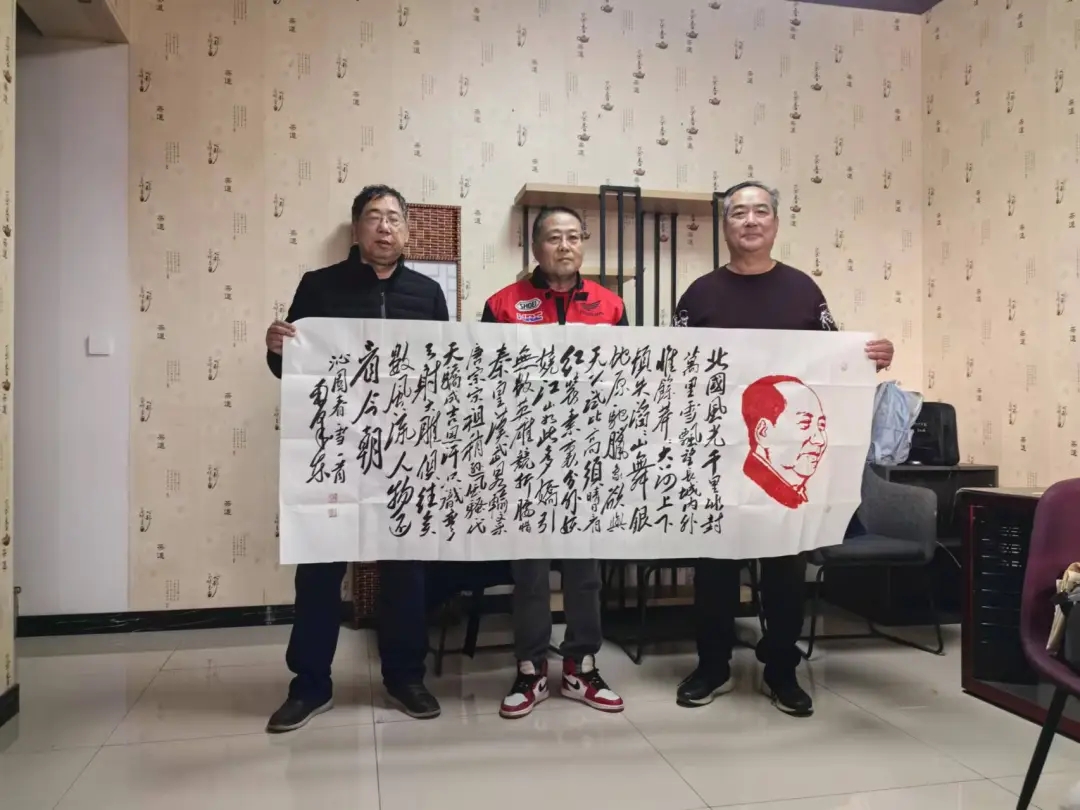 北國風光千里冰封
萬里雪飄望長城内外
惟餘莽莽大河上下
頓失滔滔山舞銀
蛇原馳象欲與
天公試比高須
紅裝素裹分外妖
嬈江山如此多嬌引
無數英雄競折腰惜
秦皇漢武略輸文采
唐宗宋祖稍遜風騷一代
天驕成吉思汗只識彎
弓射大雕俱往矣
數風流人物還
看今朝
沁園春雪一首
SHOEI
茶道